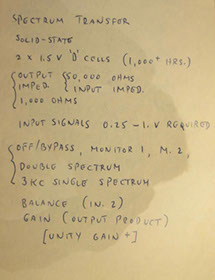 SPECTRUM TRANSFER
SOLID-STATE
2 x 1.5 V 'D' CELLS (1,000+ HRS.)
OUTPUT IMPED. 1,000 OHMS
50,000 OHMS INPUT IMPED.
INPUT SIGNALS 0.25-1.V REQUIRED
OFF/BYPASS, MONITOR 1, M. 2,
DOUBLE SPECTRUM
3KC SINGLE SPECTRUM
BALANCE (IN. 2)
GAIN (OUTPUT PRODUCT)
[UNITY GAIN +]